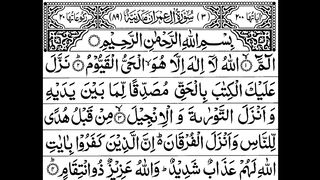 اٰیاتہا ۲۰۰ (۳) سُوْرَةُ اٰلِ عِمْرٰنَ مَدَنِیَّةٌ (۸۹) رکوعاتہا ۲۰
بِسْمِ اللهِ الرَّحْمٰنِ الرَّحِیْمِ
الٓمَّٓ ۙ﴿۱﴾ اللهُ لَاۤ اِلٰهَ اِلَّا هُوَ ۙ الْحَیُّ الْقَیُّوْمُ ﴿۲﴾ نَزَّلَ
عَلَیْكَ الْكِتٰبَ بِالْحَقِّ مُصَدِّقًا لِّمَا بَیْنَ یَدَیْهِ
وَ اَنْزَلَ التَّوْرٰىةَ وَ الْاِنْجِیْلَ ﴿۳﴾ مِنْ قَبْلُ هُدًی
لِّلنَّاسِ وَ اَنْزَلَ الْفُرْقَانَ ؕ اِنَّ الَّذِیْنَ كَفَرُوْا بِاٰیٰتِ
اللهِ لَهُمْ عَذَابٌ شَدِیْدٌ ؕ وَ اللهُ عَزِیْزٌ ذُو انْتِقَامٍ ﴿۴﴾